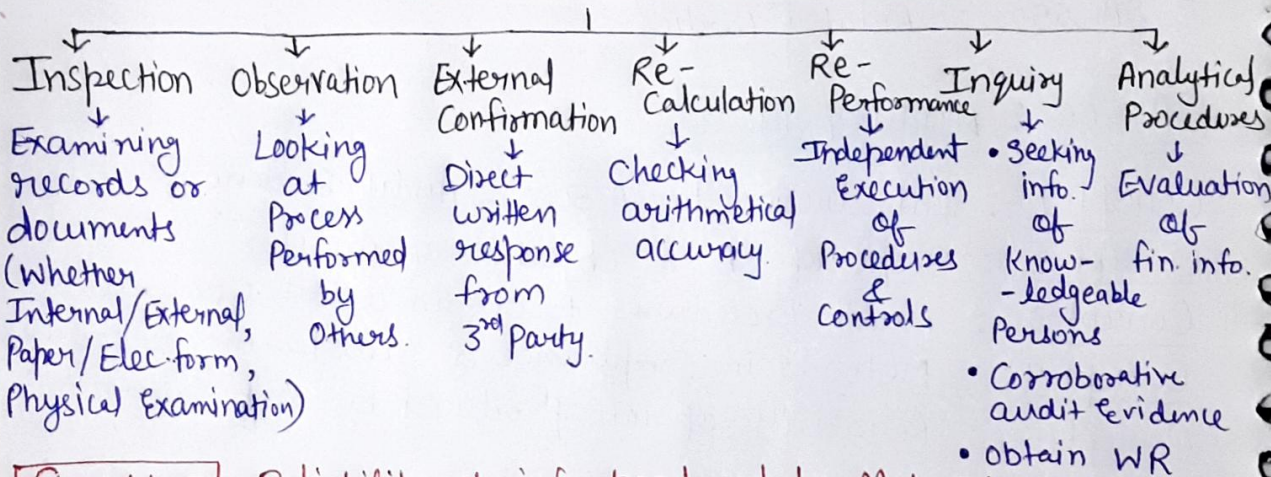 Inspection
Examining
records or
documents
(Whether
Internal/External,
Paper/Elec. form,
Physical Examination)
Observation
Looking
at
Process
Performed
by
Others.
External
Confirmation
Direct
written
response
from
3rd Party.
Re-
Calculation
Checking
arithmetical
accuracy.
Re-
Performance
Independent
Execution
of
Procedures
&
Controls
Inquiry
• Seeking
info.
of
Know-
-ledgeable
Persons
• Corroborative
audit Evidence
• Obtain WR
Analytical
Procedures
Evaluation
of
fin. info.